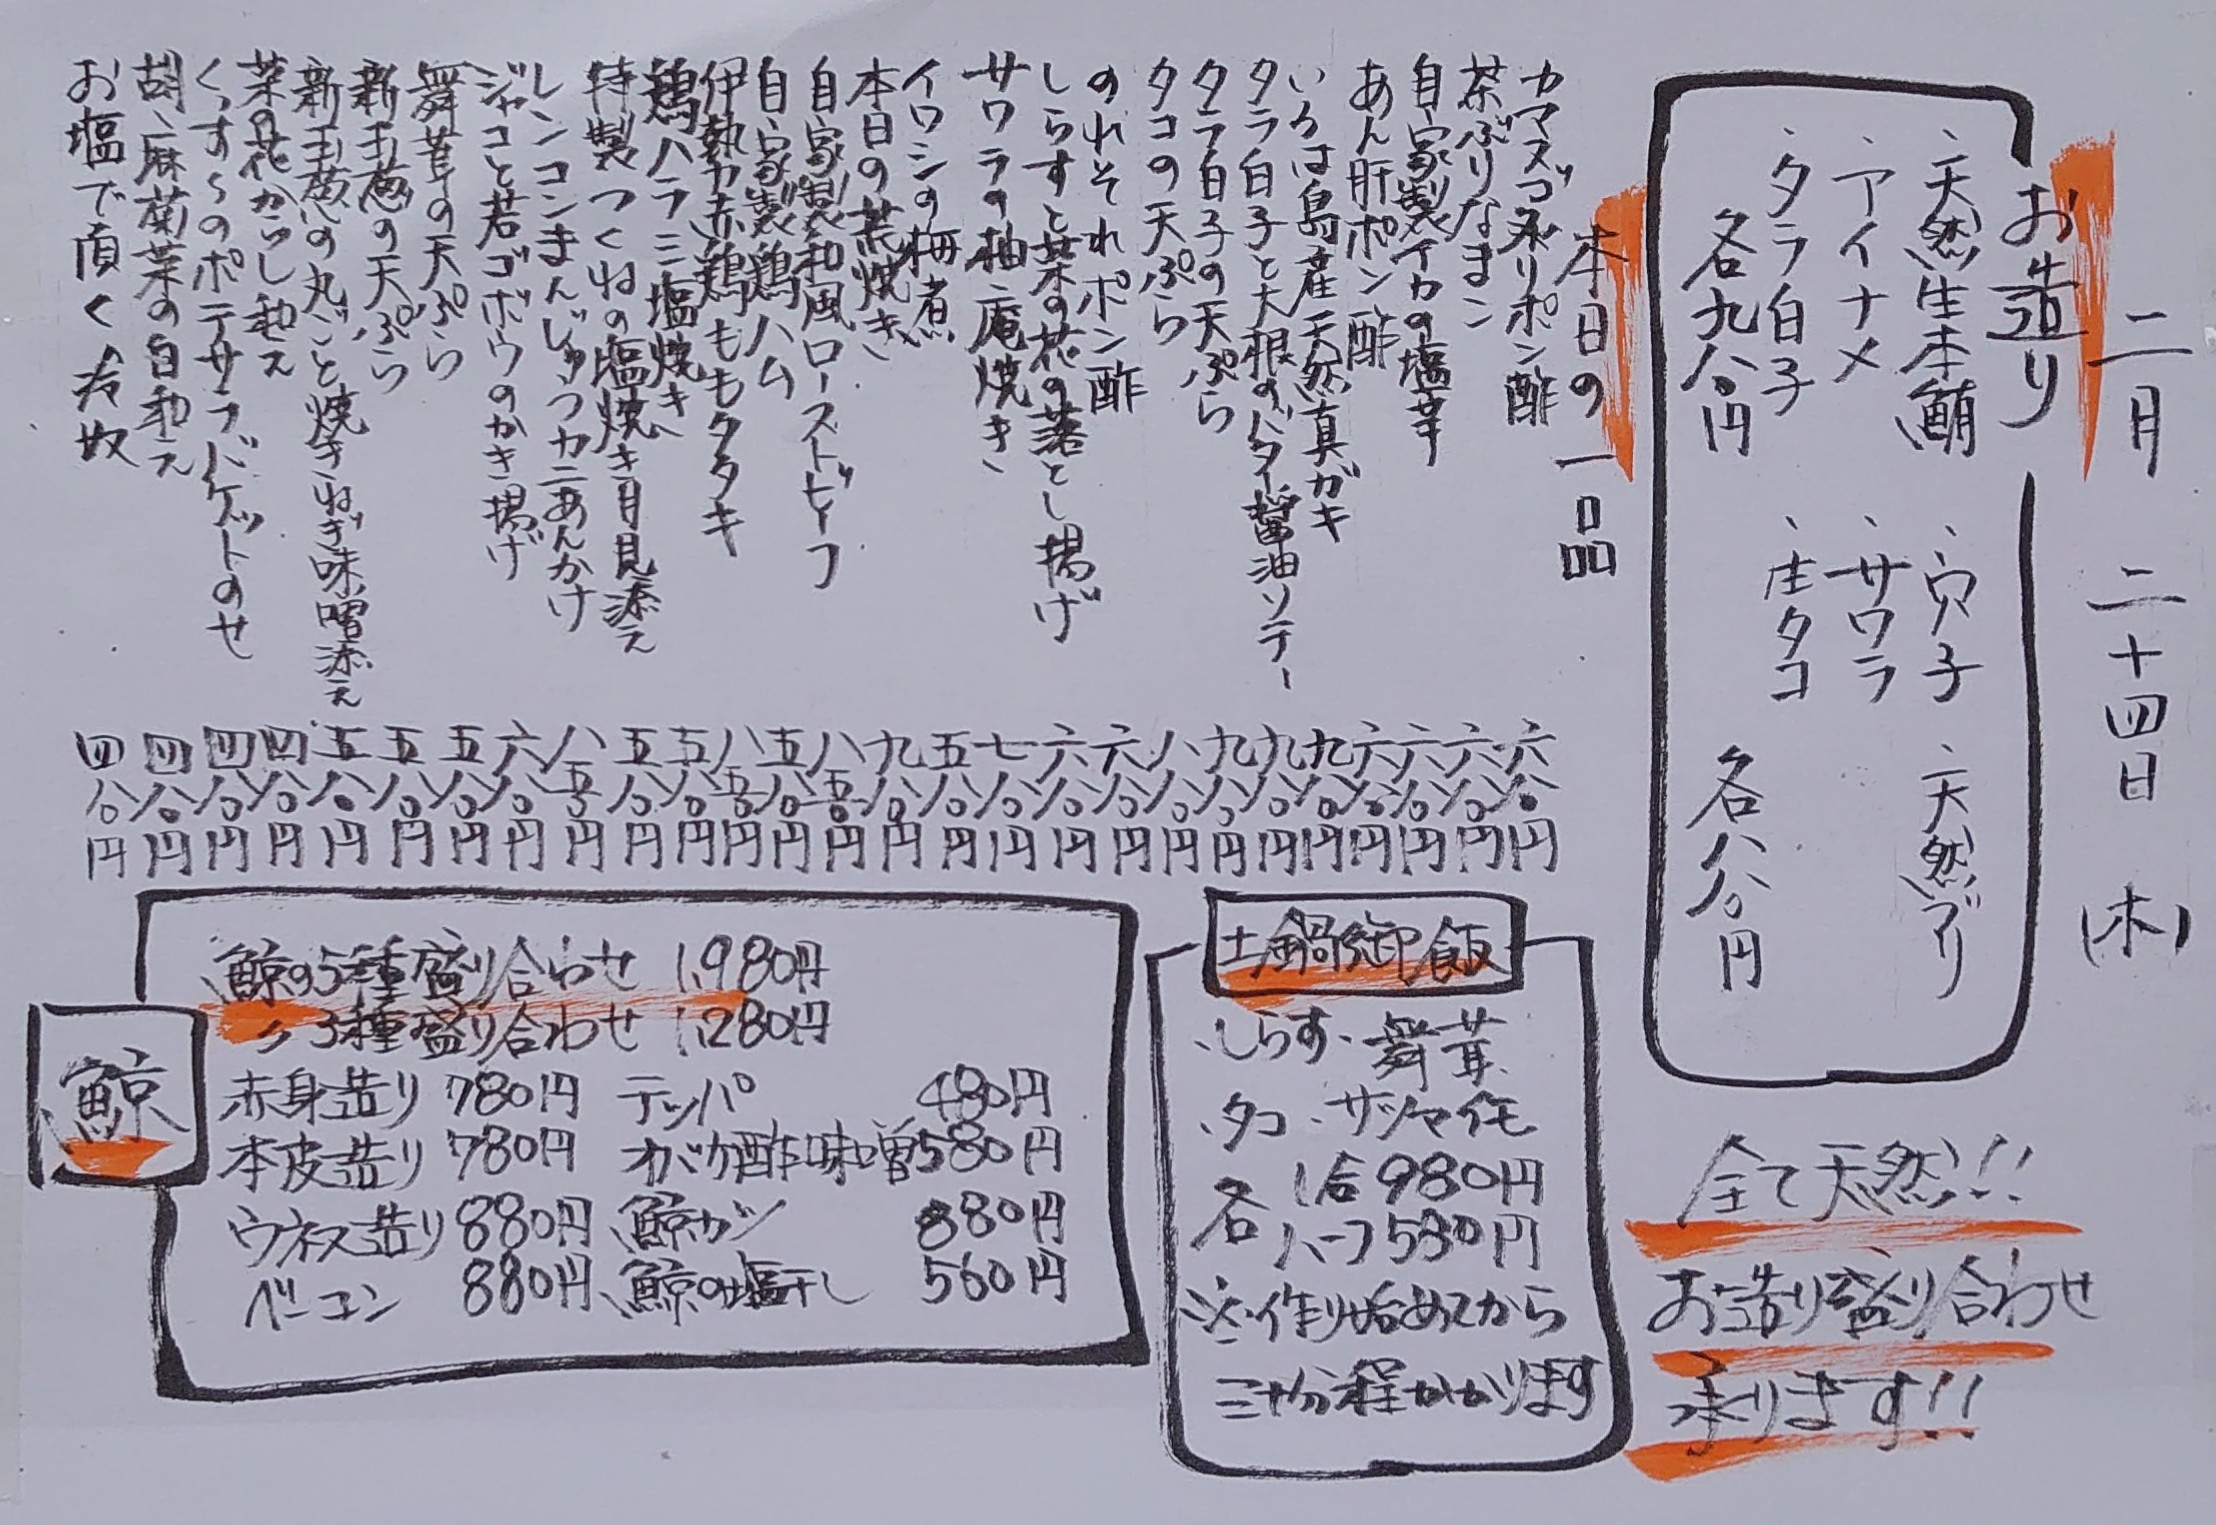 二月 二十四日 (木)
お造り
・天然生本鮪 ・穴子 ・天然ブリ
・アイナメ ・サワラ
・タラ白子 ・生タコ
各九八〇円 各八八〇円
本日の一品
カマスゴ炙りポン酢 六八〇円
茶ぶりなまこ 六八〇円
自家製イカの塩辛 六八〇円
あん肝ポン酢 六八〇円
いろは島産天然真ガキ 九八〇円
タラ白子と大根のバター醤油ソテー 九八〇円
タラ白子の天ぷら 九八〇円
タコの天ぷら 八八〇円
のれそれポン酢 六八〇円
しらすと菜の花の落とし揚げ 六八〇円
サワラの柚庵焼き 七八〇円
イワシの梅煮 五八〇円
本日の荒焼き 九八〇円
自家製和風ローストビーフ 八五〇円
自家製鶏ハム 五八〇円
伊勢赤鶏ももタタキ 八五〇円
鶏ハラミ塩焼き 五八〇円
特製つくねの塩焼き月見添え 五八〇円
レンコンまんじゅうカニあんかけ 八五〇円
ジャコと若ゴボウのかき揚げ 六八〇円
舞茸の天ぷら 五八〇円
新玉葱の天ぷら 五八〇円
新玉葱の丸ごと焼きねぎ味噌添え 五八〇円
菜の花からし和え 四八〇円
くっすんのポテサラバゲットのせ 四八〇円
胡麻菊菜の白和え 四八〇円
お塩で頂く冷奴 四八〇円
全て天然!!
お造り盛り合わせ
承ります!!
土鍋御飯
・しらす・舞茸
・タコ・サツマイモ
各 1合 980円
ハーフ 580円
※作り始めてから
三十分程かかります
鯨
鯨の5種盛り合わせ 1,980円
〃 3種盛り合わせ 1,280円
赤身造り 780円 テッパ 480円
本皮造り 780円 オバケ酢味噌 580円
ウネス造り 880円 鯨カツ 880円
ベーコン 880円 鯨の塩干し 560円